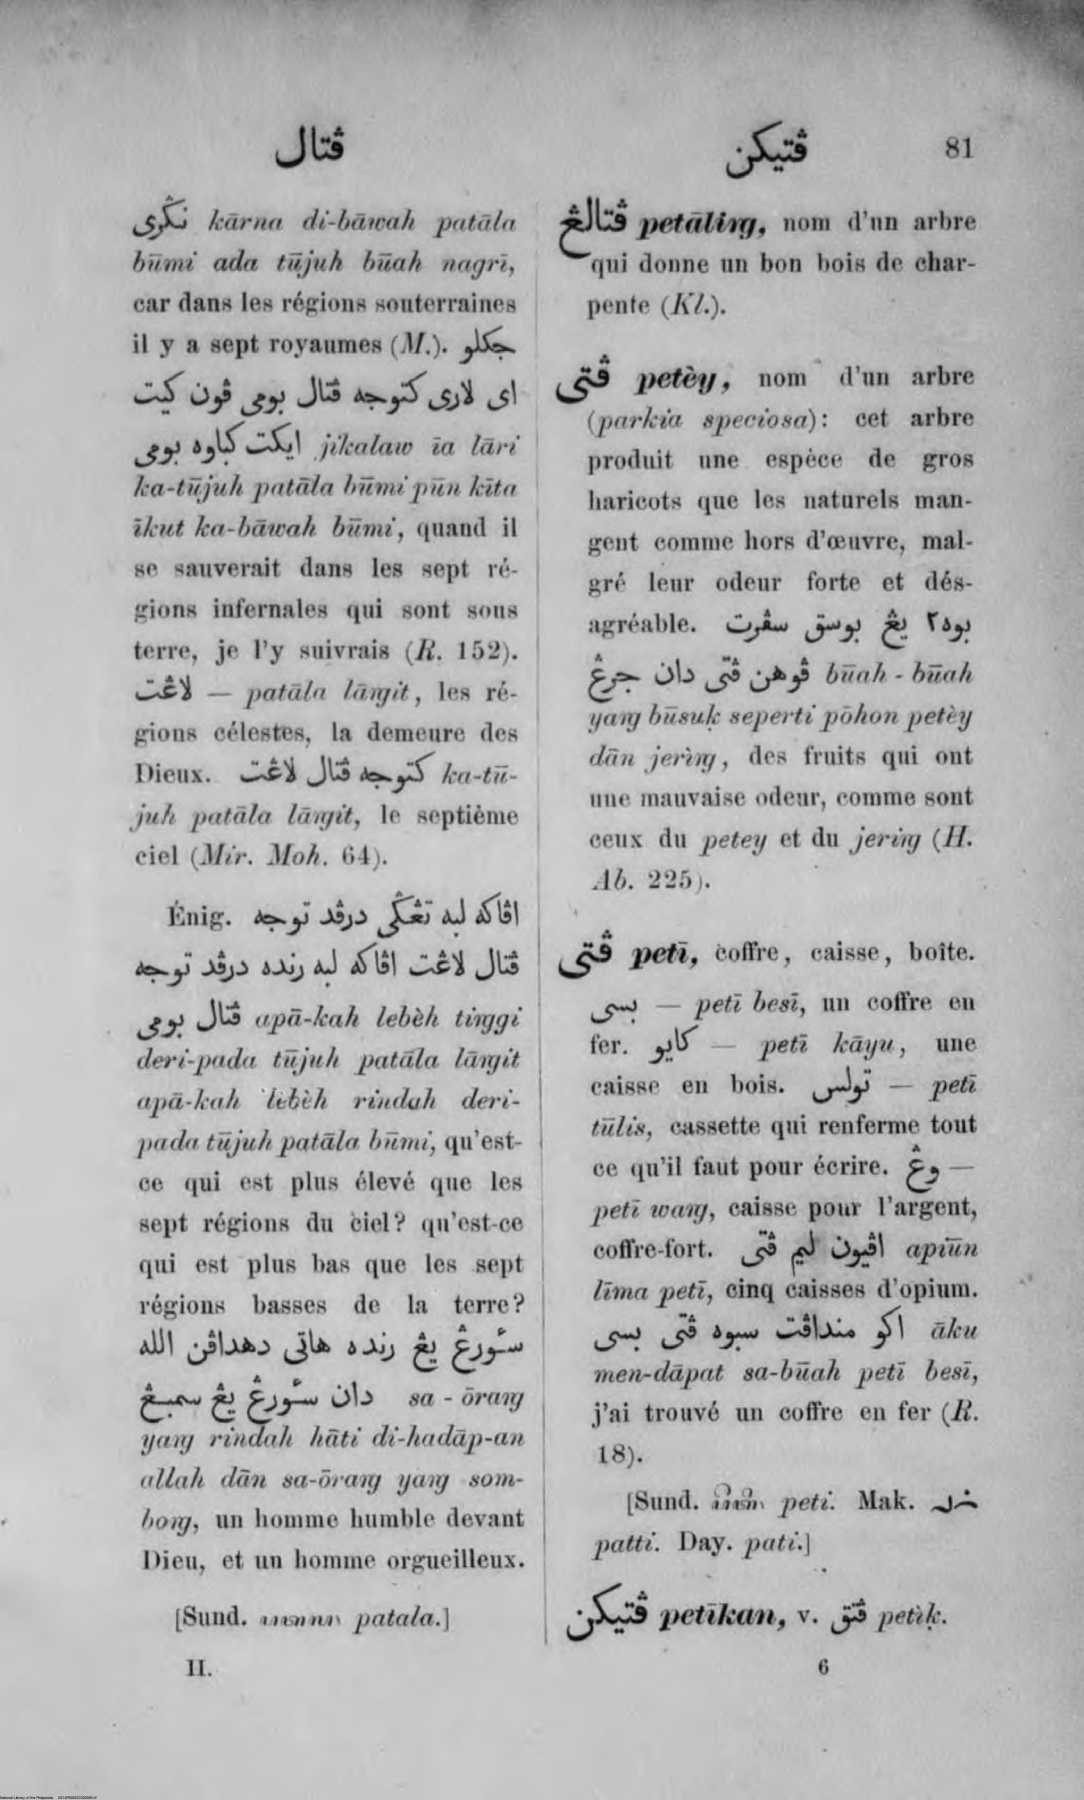 ڤتال
ڤتيكن 81
نݢري kārna di-bāwah patāla
būmi ada tūjuh būah nagrī,
car dans les régions souterraines
il y a sept royaumes (M.). جكلو
اي لاري كتوجه ڤتال بومي ڤون كيت
ايكت كباوه بومي jikalaw īa lāri
ka-tūjuh patāla būmi pūn kīta
īkut ka-bāwah būmi, quand il
se sauverait dans les sept ré-
gions infernales qui sont sous
terre, je l'y suivrais (R. 152).
لاڠت — patāla lāṅgit, les ré-
gions célestes, la demeure des
Dieux. كتوجه ڤتال لاڠت ka-tū-
juh patāla lāṅgit, le septième
ciel (Mir. Moh. 64).
Énig. اڤاكه لبه تڠݢي درڤد توجه
ڤتال لاڠت اڤاكه لبه رنده درڤد توجه
ڤتال بومي apā-kah lebèh tiṅggi
deri-pada tūjuh patāla lāṅgit
apā-kah lebèh rindah deri-
pada tūjuh patāla būmi, qu'est-
ce qui est plus élevé que les
sept régions du ciel? qu'est-ce
qui est plus bas que les sept
régions basses de la terre?
سئورڠ يڠ رنده هاتي دهداڤن الله
دان سئورڠ يڠ سمبڠ sa - ōraṅg
yaṅg rindah hāti di-hadāp-an
allah dān sa-ōraṅg yaṅg som-
boṅg, un homme humble devant
Dieu, et un homme orgueilleux.
[Sund. patala.]
II.
ڤتالڠ petāliṅg, nom d'un arbre
qui donne un bon bois de char-
pente (Kl.).
ڤتي petèy, nom d'un arbre
(parkia speciosa): cet arbre
produit une espèce de gros
haricots que les naturels man-
gent comme hors d'œuvre, mal-
gré leur odeur forte et dés-
agréable. بوه٢ يڠ بوسق سڤرت
ڤوهن ڤتي دان جرڠ būah - būah
yaṅg būsuḳ seperti pōhon petèy
dān jerìṅg, des fruits qui ont
une mauvaise odeur, comme sont
ceux du petey et du jeriṅg (H.
Ab. 225).
ڤتي petī, coffre, caisse, boîte.
بسي — petī besī, un coffre en
fer. كايو — petī kāyu, une
caisse en bois. تولس — petī
tūlis, cassette qui renferme tout
ce qu'il faut pour écrire. وڠ —
petī waṅg, caisse pour l'argent,
coffre-fort. اڤيون ليم ڤتي apīūn
līma petī, cinq caisses d'opium.
اكو منداڤت سبوه ڤتي بسي āku
men-dāpat sa-būah petī besī,
j'ai trouvé un coffre en fer (R.
18).
[Sund. peti. Mak.
patti. Day. pati.]
ڤتيكن petīkan, v. ڤتق petìḳ.
6